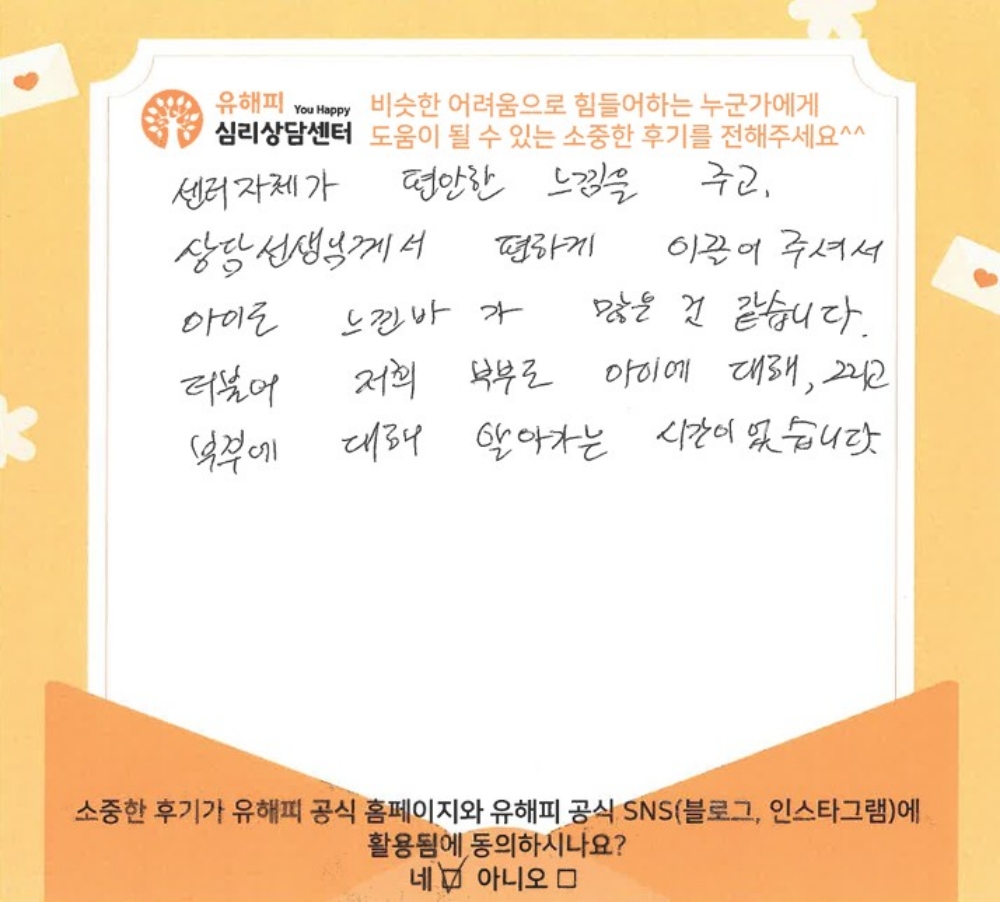 유해피 You Happy
심리상담센터
비슷한 어려움으로 힘들어하는 누군가에게
도움이 될 수 있는 소중한 후기를 전해주세요^^
센터 자체가 편안한 느낌을 주고,
상담 선생님께서 편하게 이끌어 주셔서
아이도 느낀바가 많은 것 같습니다.
더불어 저희 부부도 아이에 대해, 그리고
부부에 대해 알아가는 시간이 였습니다
소중한 후기가 유해피 공식 홈페이지와 유해피 공식 SNS(블로그, 인스타그램)에
활용됨에 동의하시나요?
네 ☑ 아니오 ☐